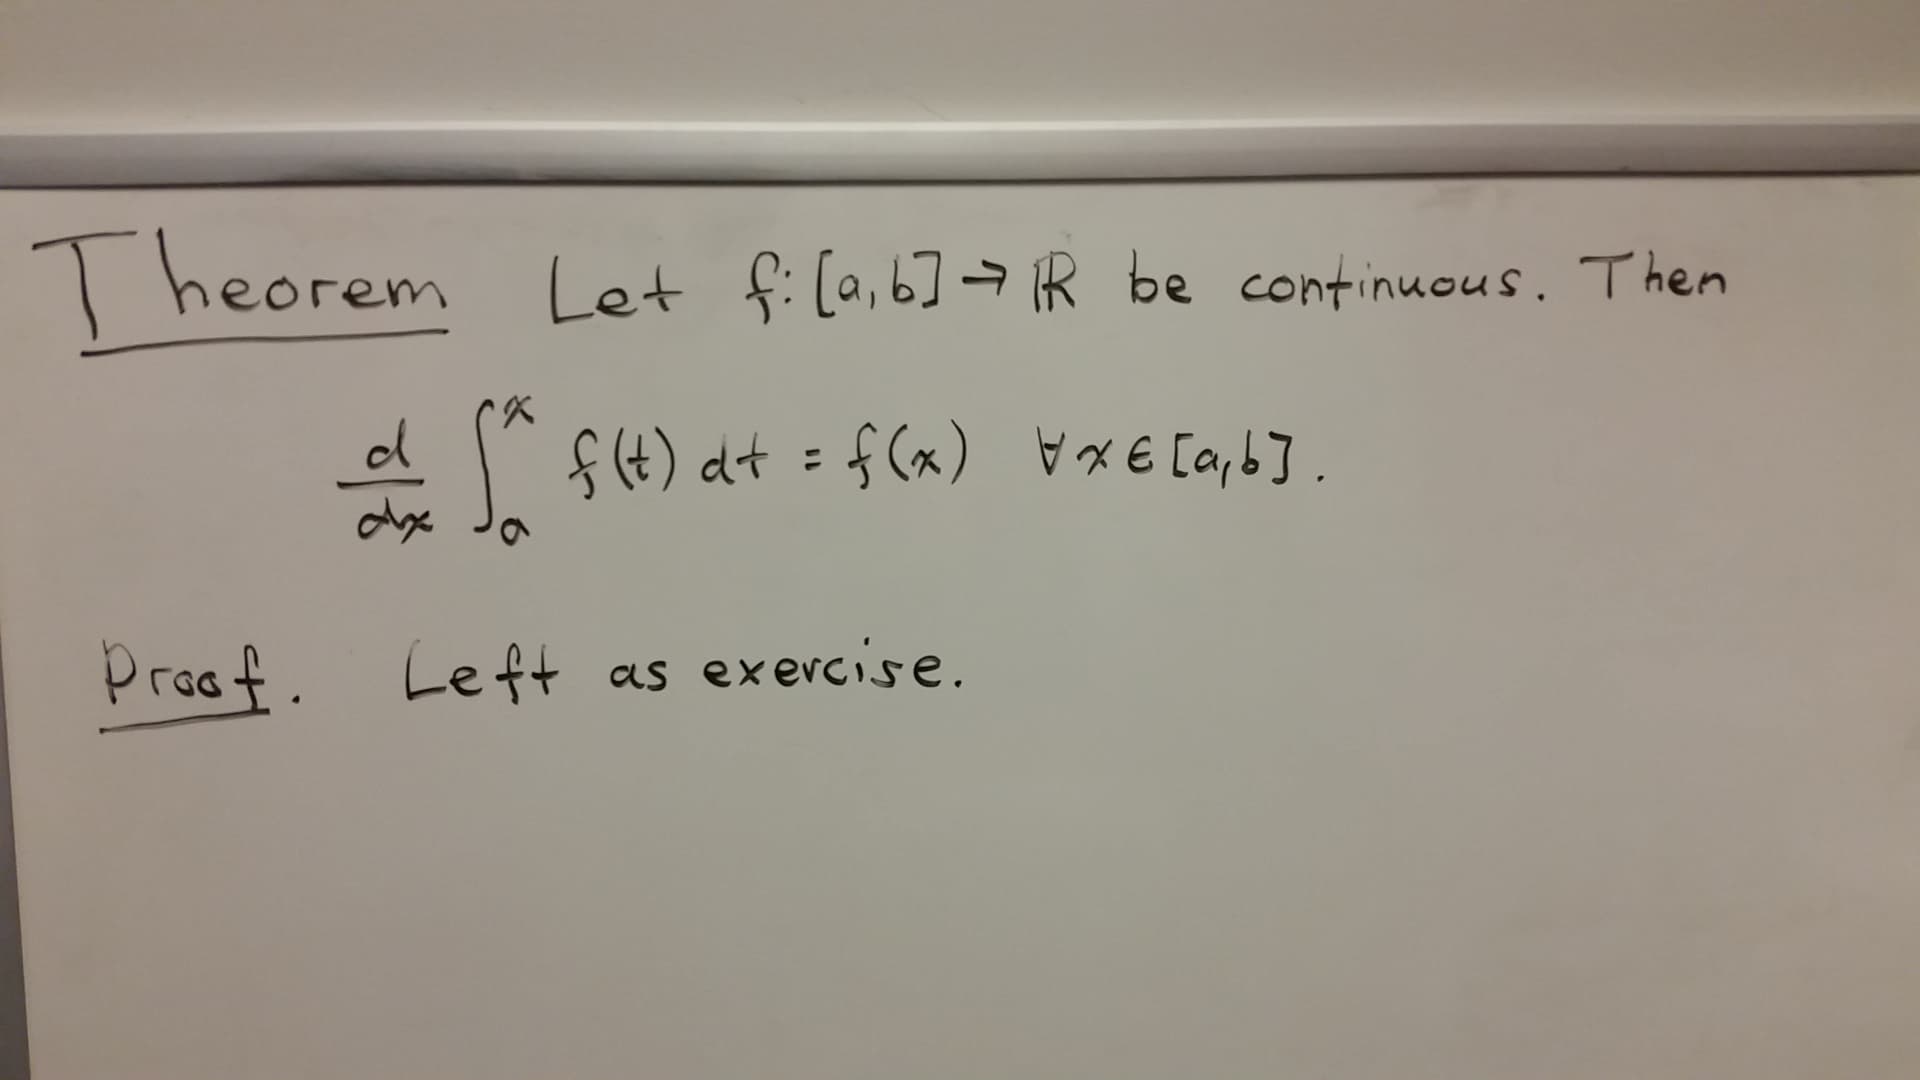 Theorem Let f: [a,b] → ℝ be continuous. Then
d/dx ∫ₐˣ f(t) dt = f(x) ∀ x ∈ [a,b].
Proof. Left as exercise.